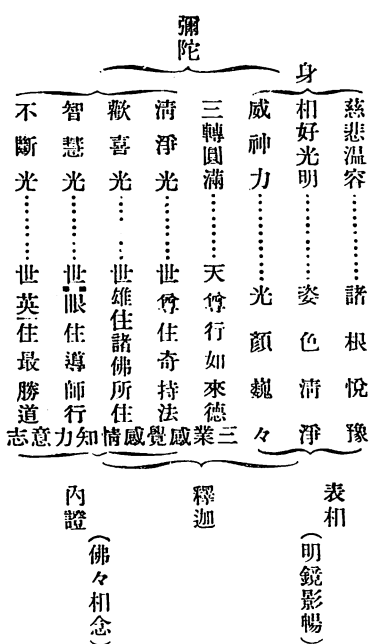 彌陀
身
慈悲温容…………諸根悅豫
相好光明…………姿色清淨
威神力…………光顏巍々
三轉圓滿…………天尊行如來德
清淨光…………世尊住奇持法
歡喜光…………世雄住諸佛所住
智慧光…………世眼住導師行
不斷光…………世英住最勝道
三業感覺感情知力意志
表相
(明鏡影暢)
釋迦
內證
(佛々相念)